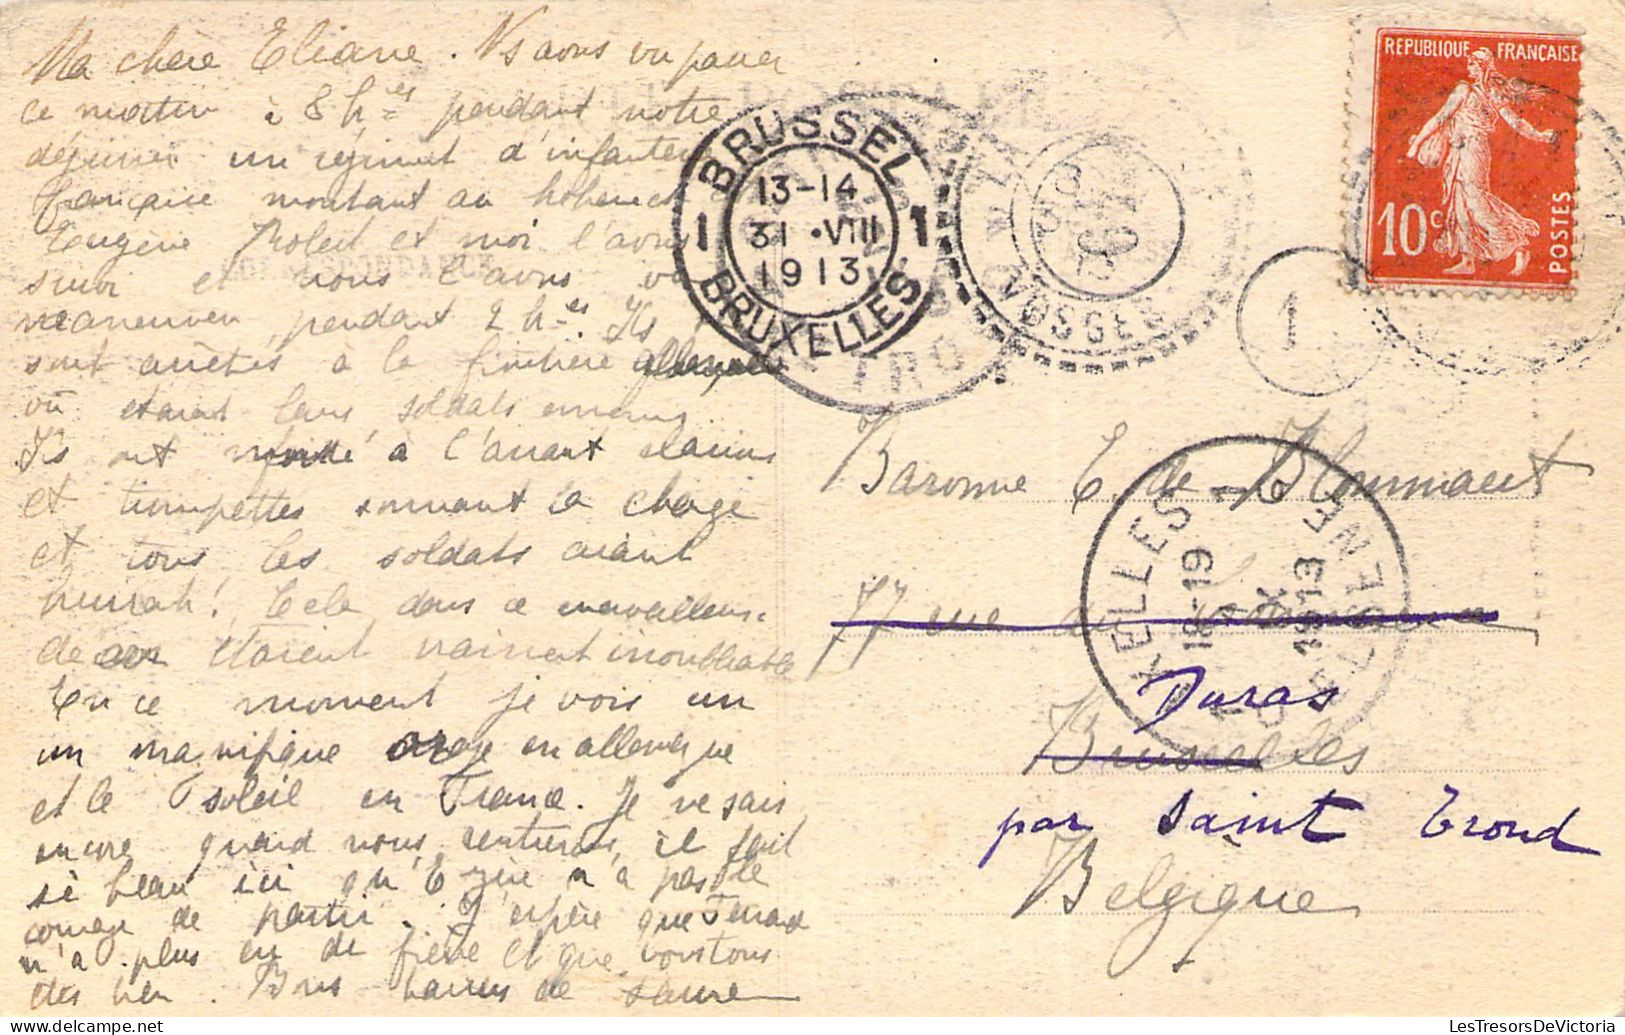 Ma chère Eliane. Ns avons vu passer
ce matin à 8 hres pendant notre
déjeuner un régiment d'infanterie
française montant au hohneck
Eugène et moi l'avons
suivi et nous l'avons vu
manœuvrer pendant 2 hres. Ils
sont arrêtés à la frontière allemande
où étaient leurs soldats ennemis
Ils ont à l'assaut clairons
et trompettes sonnant la charge
et tous les soldats criant
hurrah! Cela dans ce merveilleux
décor étaient vraiment inoubliable
En ce moment je vois un
un magnifique orage en allemagne
et le soleil en France. Je ne sais
encore quand nous rentrerons, il fait
si beau ici qu'Eugène n'a pas le
courage de partir. J'espère que
n'a plus eu de fièvre et que vous tous
êtes bien. Bons baisers de
BRUSSEL
13-14
1 31 •VIII 1
1913
BRUXELLES
VOSGES
REPUBLIQUE FRANÇAISE
10c
POSTES
1
Baronne E. de
77 rue du
Duras
Bruxelles
par Saint Trond
Belgique
IXELLES 1
18-19
IX
1913
1 ELSENE
CORRESPONDANCE
LesTresorsDeVictoria
LesTresorsDeVictoria.delcampe.net